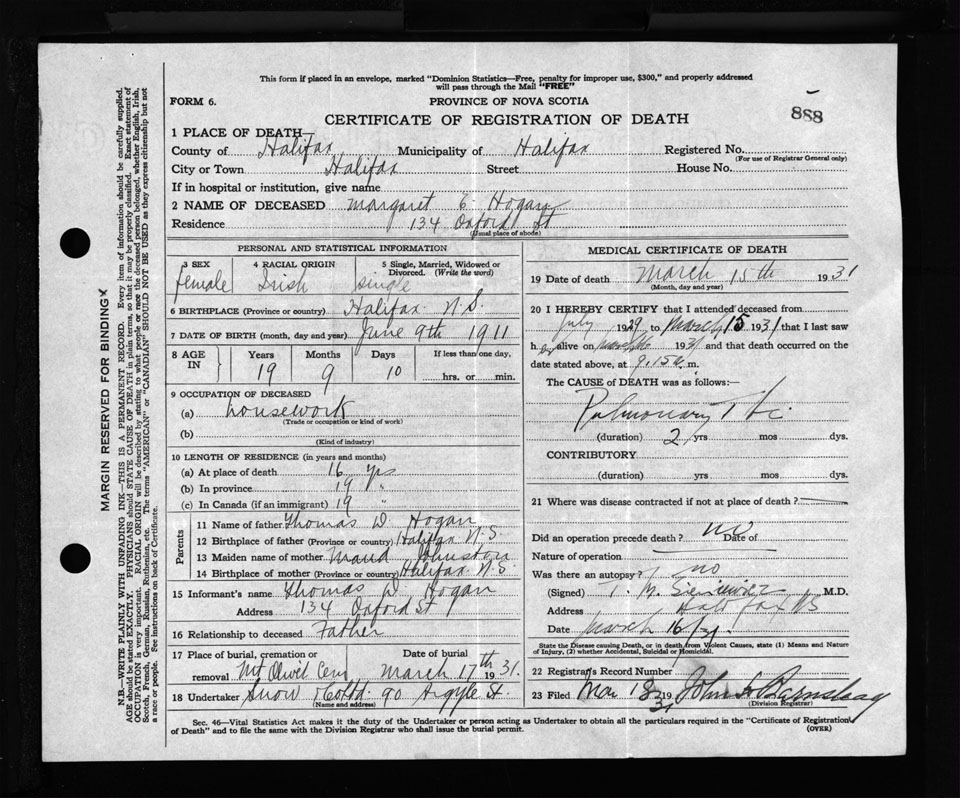 This form if placed in an envelope, marked "Dominion Statistics—Free, penalty for improper use, $300," and properly addressed
will pass through the Mail "FREE"
FORM 6.
PROVINCE OF NOVA SCOTIA
888
CERTIFICATE OF REGISTRATION OF DEATH
1 PLACE OF DEATH—
County of Halifax Municipality of Halifax Registered No.
(For use of Registrar General only)
City or Town Halifax Street House No.
If in hospital or institution, give name
2 NAME OF DECEASED Margaret E. Hogan
Residence 134 Oxford St
(Usual place of abode)
PERSONAL AND STATISTICAL INFORMATION
3 SEX 4 RACIAL ORIGIN 5 Single, Married, Widowed or
Divorced. (Write the word)
female Irish single
6 BIRTHPLACE (Province or country) Halifax N.S.
7 DATE OF BIRTH (month, day and year) June 9th 1911
8 AGE IN Years Months Days If less than one day,
19 9 10 hrs. or min.
9 OCCUPATION OF DECEASED
(a) housework
(Trade or occupation or kind of work)
(b)
(Kind of industry)
10 LENGTH OF RESIDENCE (in years and months)
(a) At place of death 16 yrs
(b) In province 19 "
(c) In Canada (if an immigrant) 19 "
Parents
11 Name of father Thomas W. Hogan
12 Birthplace of father (Province or country) Halifax N.S.
13 Maiden name of mother Maud Johnston
14 Birthplace of mother (Province or country) Halifax N.S.
15 Informant's name Thomas W Hogan
Address 134 Oxford St
16 Relationship to deceased Father
17 Place of burial, cremation or Date of burial
removal Mt Olivet Cem March 17th 1931.
18 Undertaker Snow & Co Ltd. 90 Argyle St.
(Name and address)
MEDICAL CERTIFICATE OF DEATH
19 Date of death March 15th 1931
(Month, day and year)
20 I HEREBY CERTIFY that I attended deceased from
July 1929 to March 15 1931 that I last saw
her alive on March 1931 and that death occurred on the
date stated above, at 9.15 a. m.
The CAUSE OF DEATH was as follows:—
Pulmonary
(duration) 2 yrs mos dys.
CONTRIBUTORY
(duration) yrs mos dys.
21 Where was disease contracted if not at place of death?
Did an operation precede death? no Date of
Nature of operation
Was there an autopsy? no
(Signed) T. M. Sieniewicz M.D.
Address Halifax NS
Date March 16/31.
State the Disease causing Death, or in deaths from Violent Causes, state (1) Means and Nature
of Injury, (2) whether Accidental, Suicidal or Homicidal.
22 Registrar's Record Number
23 Filed Mar 18 1931 John
(Division Registrar)
Sec. 46—Vital Statistics Act makes it the duty of the Undertaker or person acting as Undertaker to obtain all the particulars required in the "Certificate of Registration
of Death" and to file the same with the Division Registrar who shall issue the burial permit.
(OVER)
MARGIN RESERVED FOR BINDING
N.B.—WRITE PLAINLY WITH UNFADING INK—THIS IS A PERMANENT RECORD. Every item of information should be carefully supplied.
AGE should be stated EXACTLY. PHYSICIANS should STATE CAUSE OF DEATH in plain terms, so that it may be properly classified. Exact statement of
OCCUPATION is very important. RACIAL ORIGIN will be described by stating to what people or race the deceased person belonged, whether English, Irish,
Scotch, French, German, Russian, Ruthenian, etc. The terms "AMERICAN" or "CANADIAN" SHOULD NOT BE USED as they express citizenship but not
a race or people. See instructions on back of Certificate.